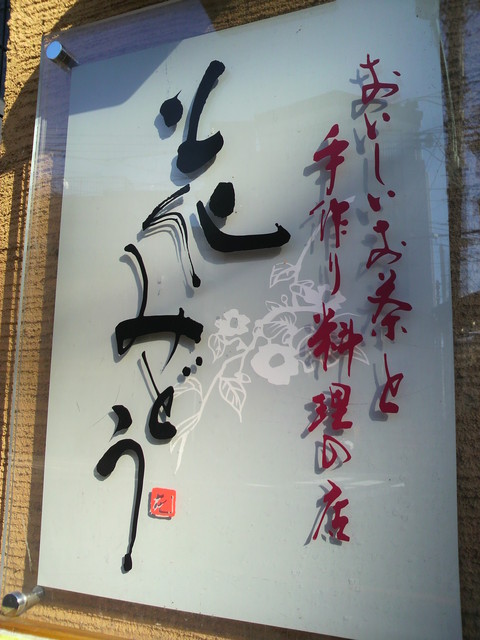 おいしいお茶と
手作り料理の店
花みどう